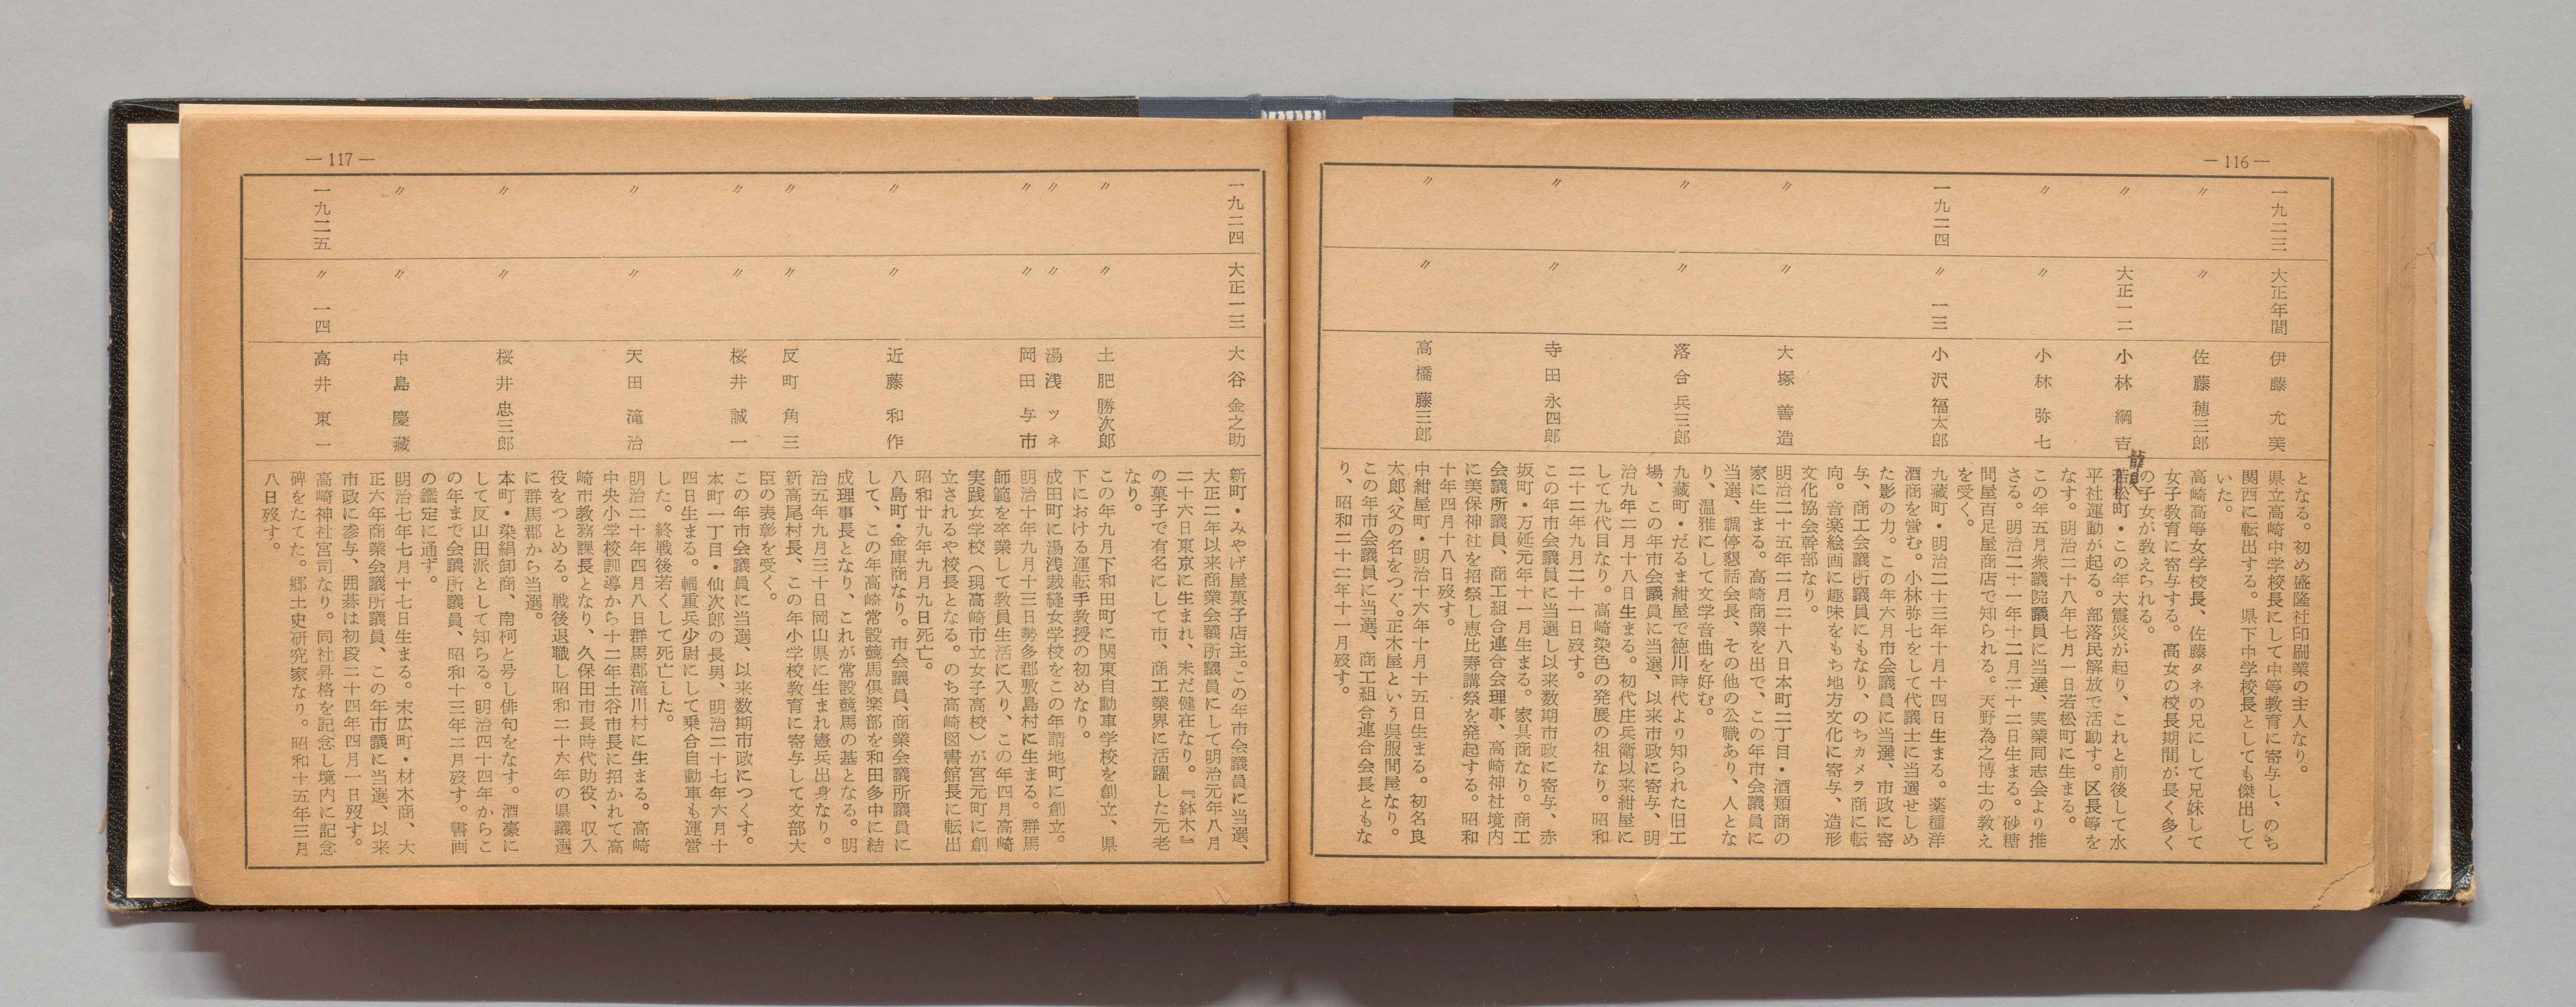 — 116 —
一九二三 大正年間 伊藤允美
となる。初め盛隆社印刷業の主人なり。
県立高崎中学校長にして中等教育に寄与し、のち
関西に転出する。県下中学校長としても傑出して
いた。
〃 〃 佐藤穂三郎
高崎高等女学校長、佐藤タネの兄にして兄妹して
女子教育に寄与する。高女の校長期間が長く多く
の子女が教えられる。
〃 大正一二 小林綱吉
龍見
若松町・この年大震災が起り、これと前後して水
平社運動が起る。部落民解放で活動す。区長等を
なす。明治二十八年七月一日若松町に生まる。
〃 〃 小林弥七
この年五月衆議院議員に当選、実業同志会より推
さる。明治二十一年十二月二十二日生まる。砂糖
問屋百足屋商店で知られる。天野為之博士の教え
を受く。
一九二四 〃 一三 小沢福太郎
九蔵町・明治二十三年十月十四日生まる。薬種洋
酒商を営む。小林弥七をして代議士に当選せしめ
た影の力。この年六月市会議員に当選、市政に寄
与、商工会議所議員にもなり、のちカメラ商に転
向。音楽絵画に趣味をもち地方文化に寄与、造形
文化協会幹部なり。
〃 〃 大塚善造
明治二十五年二月二十八日本町二丁目・酒類商の
家に生まる。高崎商業を出で、この年市会議員に
当選、調停懇話会長、その他の公職あり、人とな
り、温雅にして文学音曲を好む。
〃 〃 落合兵三郎
九蔵町・だるま紺屋で徳川時代より知られた旧工
場、この年市会議員に当選、以来市政に寄与、明
治九年二月十八日生まる。初代庄兵衛以来紺屋に
して九代目なり。高崎染色の発展の祖なり。昭和
二十二年九月二十一日歿す。
〃 〃 寺田永四郎
この年市会議員に当選し以来数期市政に寄与、赤
坂町・万延元年十一月生まる。家具商なり。商工
会議所議員、商工組合連合会理事、高崎神社境内
に美保神社を招祭し恵比寿講祭を発起する。昭和
十年四月十八日歿す。
〃 〃 高橋藤三郎
中紺屋町・明治十六年十月十五日生まる。初名良
太郎、父の名をつぐ。正木屋という呉服問屋なり。
この年市会議員に当選、商工組合連合会長ともな
り、昭和二十二年十一月歿す。
— 117 —
一九二四 大正一三 大谷金之助
新町・みやげ屋菓子店主。この年市会議員に当選、
大正二年以来商業会議所議員にして明治元年八月
二十六日東京に生まれ、未だ健在なり。『鉢木』
の菓子で有名にして市、商工業界に活躍した元老
なり。
〃 〃 土肥勝次郎
この年九月下和田町に関東自動車学校を創立、県
下における運転手教授の初めなり。
〃 〃 湯浅ツネ
成田町に湯浅裁縫女学校をこの年請地町に創立。
〃 〃 岡田与市
明治十年九月十三日勢多郡敷島村に生まる。群馬
師範を卒業して教員生活に入り、この年四月高崎
実践女学校（現高崎市立女子高校）が宮元町に創
立されるや校長となる。のち高崎図書館長に転出
昭和廿九年九月九日死亡。
〃 〃 近藤和作
八島町・金庫商なり。市会議員、商業会議所議員に
して、この年高崎常設競馬倶楽部を和田多中に結
成理事長となり、これが常設競馬の基となる。明
治五年九月三十日岡山県に生まれ憲兵出身なり。
〃 〃 反町角三
新高尾村長、この年小学校教育に寄与して文部大
臣の表彰を受く。
〃 〃 桜井誠一
この年市会議員に当選、以来数期市政につくす。
本町一丁目・仙次郎の長男、明治二十七年六月十
四日生まる。輜重兵少尉にして乗合自動車も運営
した。終戦後若くして死亡した。
〃 〃 天田滝治
明治二十年四月八日群馬郡滝川村に生まる。高崎
中央小学校訓導から十二年土谷市長に招かれて高
崎市教務課長となり、久保田市長時代助役、収入
役をつとめる。戦後退職し昭和二十六年の県議選
に群馬郡から当選。
〃 〃 桜井忠三郎
本町・染絹卸商、南柯と号し俳句をなす。酒豪に
して反山田派として知らる。明治四十四年からこ
の年まで会議所議員、昭和十三年二月歿す。書画
の鑑定に通ず。
〃 〃 中島慶蔵
明治七年七月十七日生まる。末広町・材木商、大
正六年商業会議所議員、この年市議に当選、以来
市政に参与、囲碁は初段二十四年四月一日歿す。
一九二五 〃 一四 高井東一
高崎神社宮司なり。同社昇格を記念し境内に記念
碑をたてた。郷土史研究家なり。昭和十五年三月
八日歿す。